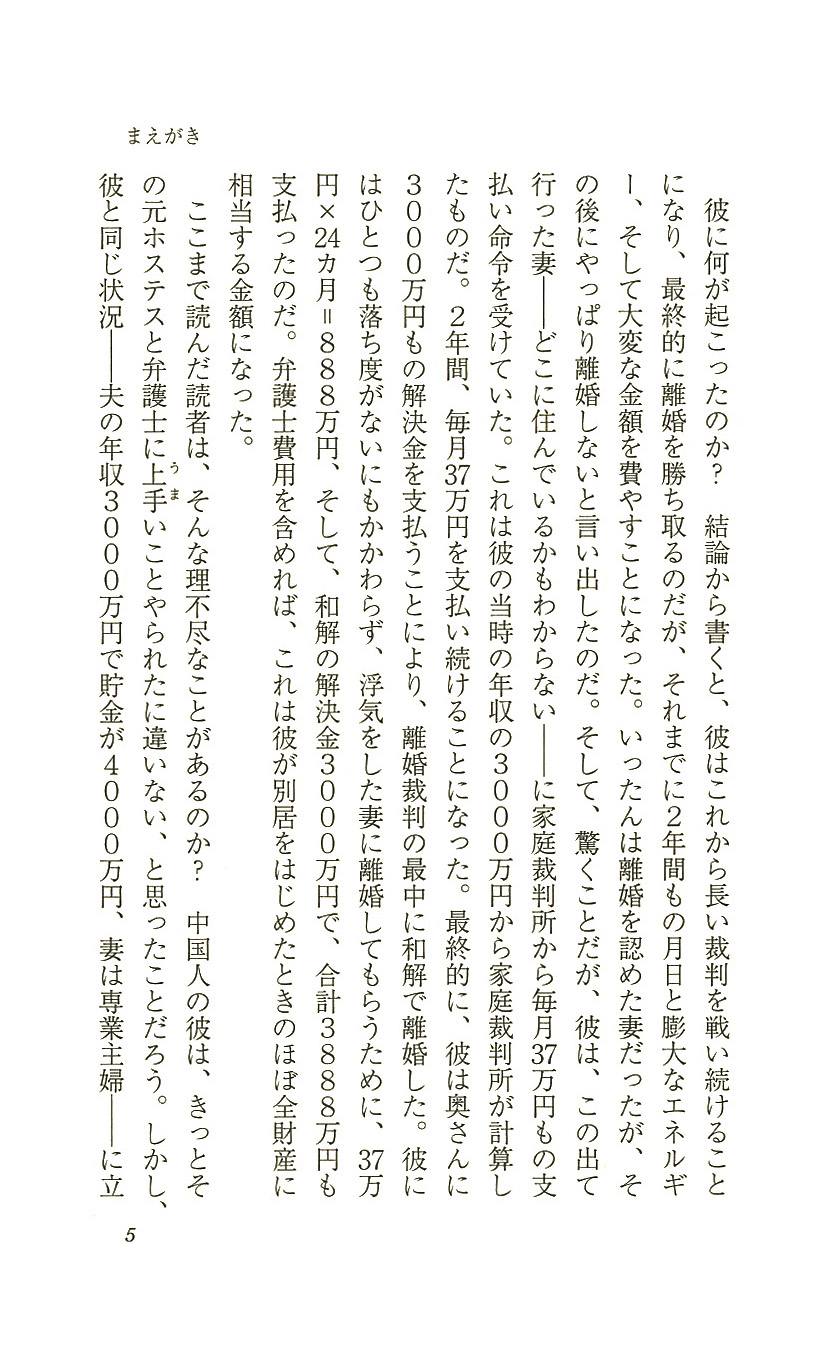 まえがき
　彼に何が起こったのか？　結論から書くと、彼はこれから長い裁判を戦い続けること
になり、最終的に離婚を勝ち取るのだが、それまでに２年間もの月日と膨大なエネルギ
ー、そして大変な金額を費やすことになった。いったんは離婚を認めた妻だったが、そ
の後にやっぱり離婚しないと言い出したのだ。そして、驚くことだが、彼は、この出て
行った妻――どこに住んでいるかもわからない――に家庭裁判所から毎月37万円もの支
払い命令を受けていた。これは彼の当時の年収の３０００万円から家庭裁判所が計算し
たものだ。２年間、毎月37万円を支払い続けることになった。最終的に、彼は奥さんに
３０００万円もの解決金を支払うことにより、離婚裁判の最中に和解で離婚した。彼に
はひとつも落ち度がないにもかかわらず、浮気をした妻に離婚してもらうために、37万
円×24カ月＝８８８万円、そして、和解の解決金３０００万円で、合計３８８８万円も
支払ったのだ。弁護士費用を含めれば、これは彼が別居をはじめたときのほぼ全財産に
相当する金額になった。
　ここまで読んだ読者は、そんな理不尽なことがあるのか？　中国人の彼は、きっとそ
の元ホステスと弁護士に上手いことやられたに違いない、と思ったことだろう。しかし、
うま
彼と同じ状況――夫の年収３０００万円で貯金が４０００万円、妻は専業主婦――に立
5